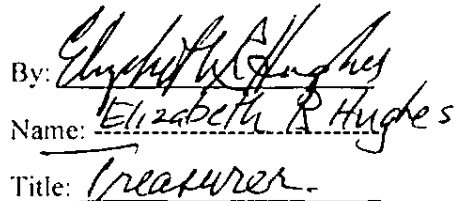 By: Elizabeth R Hughes
Name: Elizabeth R Hughes
Title: Treasurer.